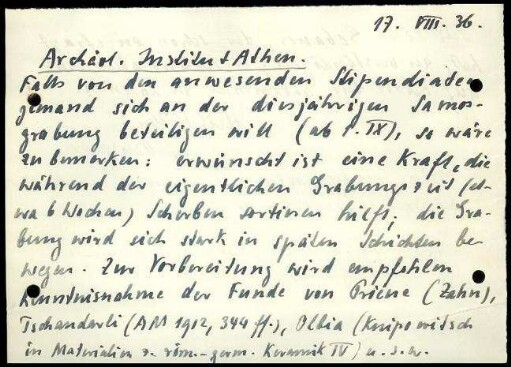 17. VIII. 36.
Archäol. Institut Athen.
Falls von den anwesenden Stipendiaten
jemand sich an der diesjährigen Samos-
grabung beteiligen will (ab 1. IX), so wäre
zu bemerken: erwünscht ist eine Kraft, die
während der eigentlichen Grabungszeit (et-
wa 6 Wochen) Scherben sortieren hilft; die Gra-
bung wird sich stark in späten Schichten be-
wegen. Zur Vorbereitung wird empfohlen
Kenntnisnahme der Funde von Priene (Zahn),
Tschandarli (AM 1912, 344 ff.), Olbia (Knipowitsch
in Materialien z. röm.-germ. Keramik IV) u. s. w.